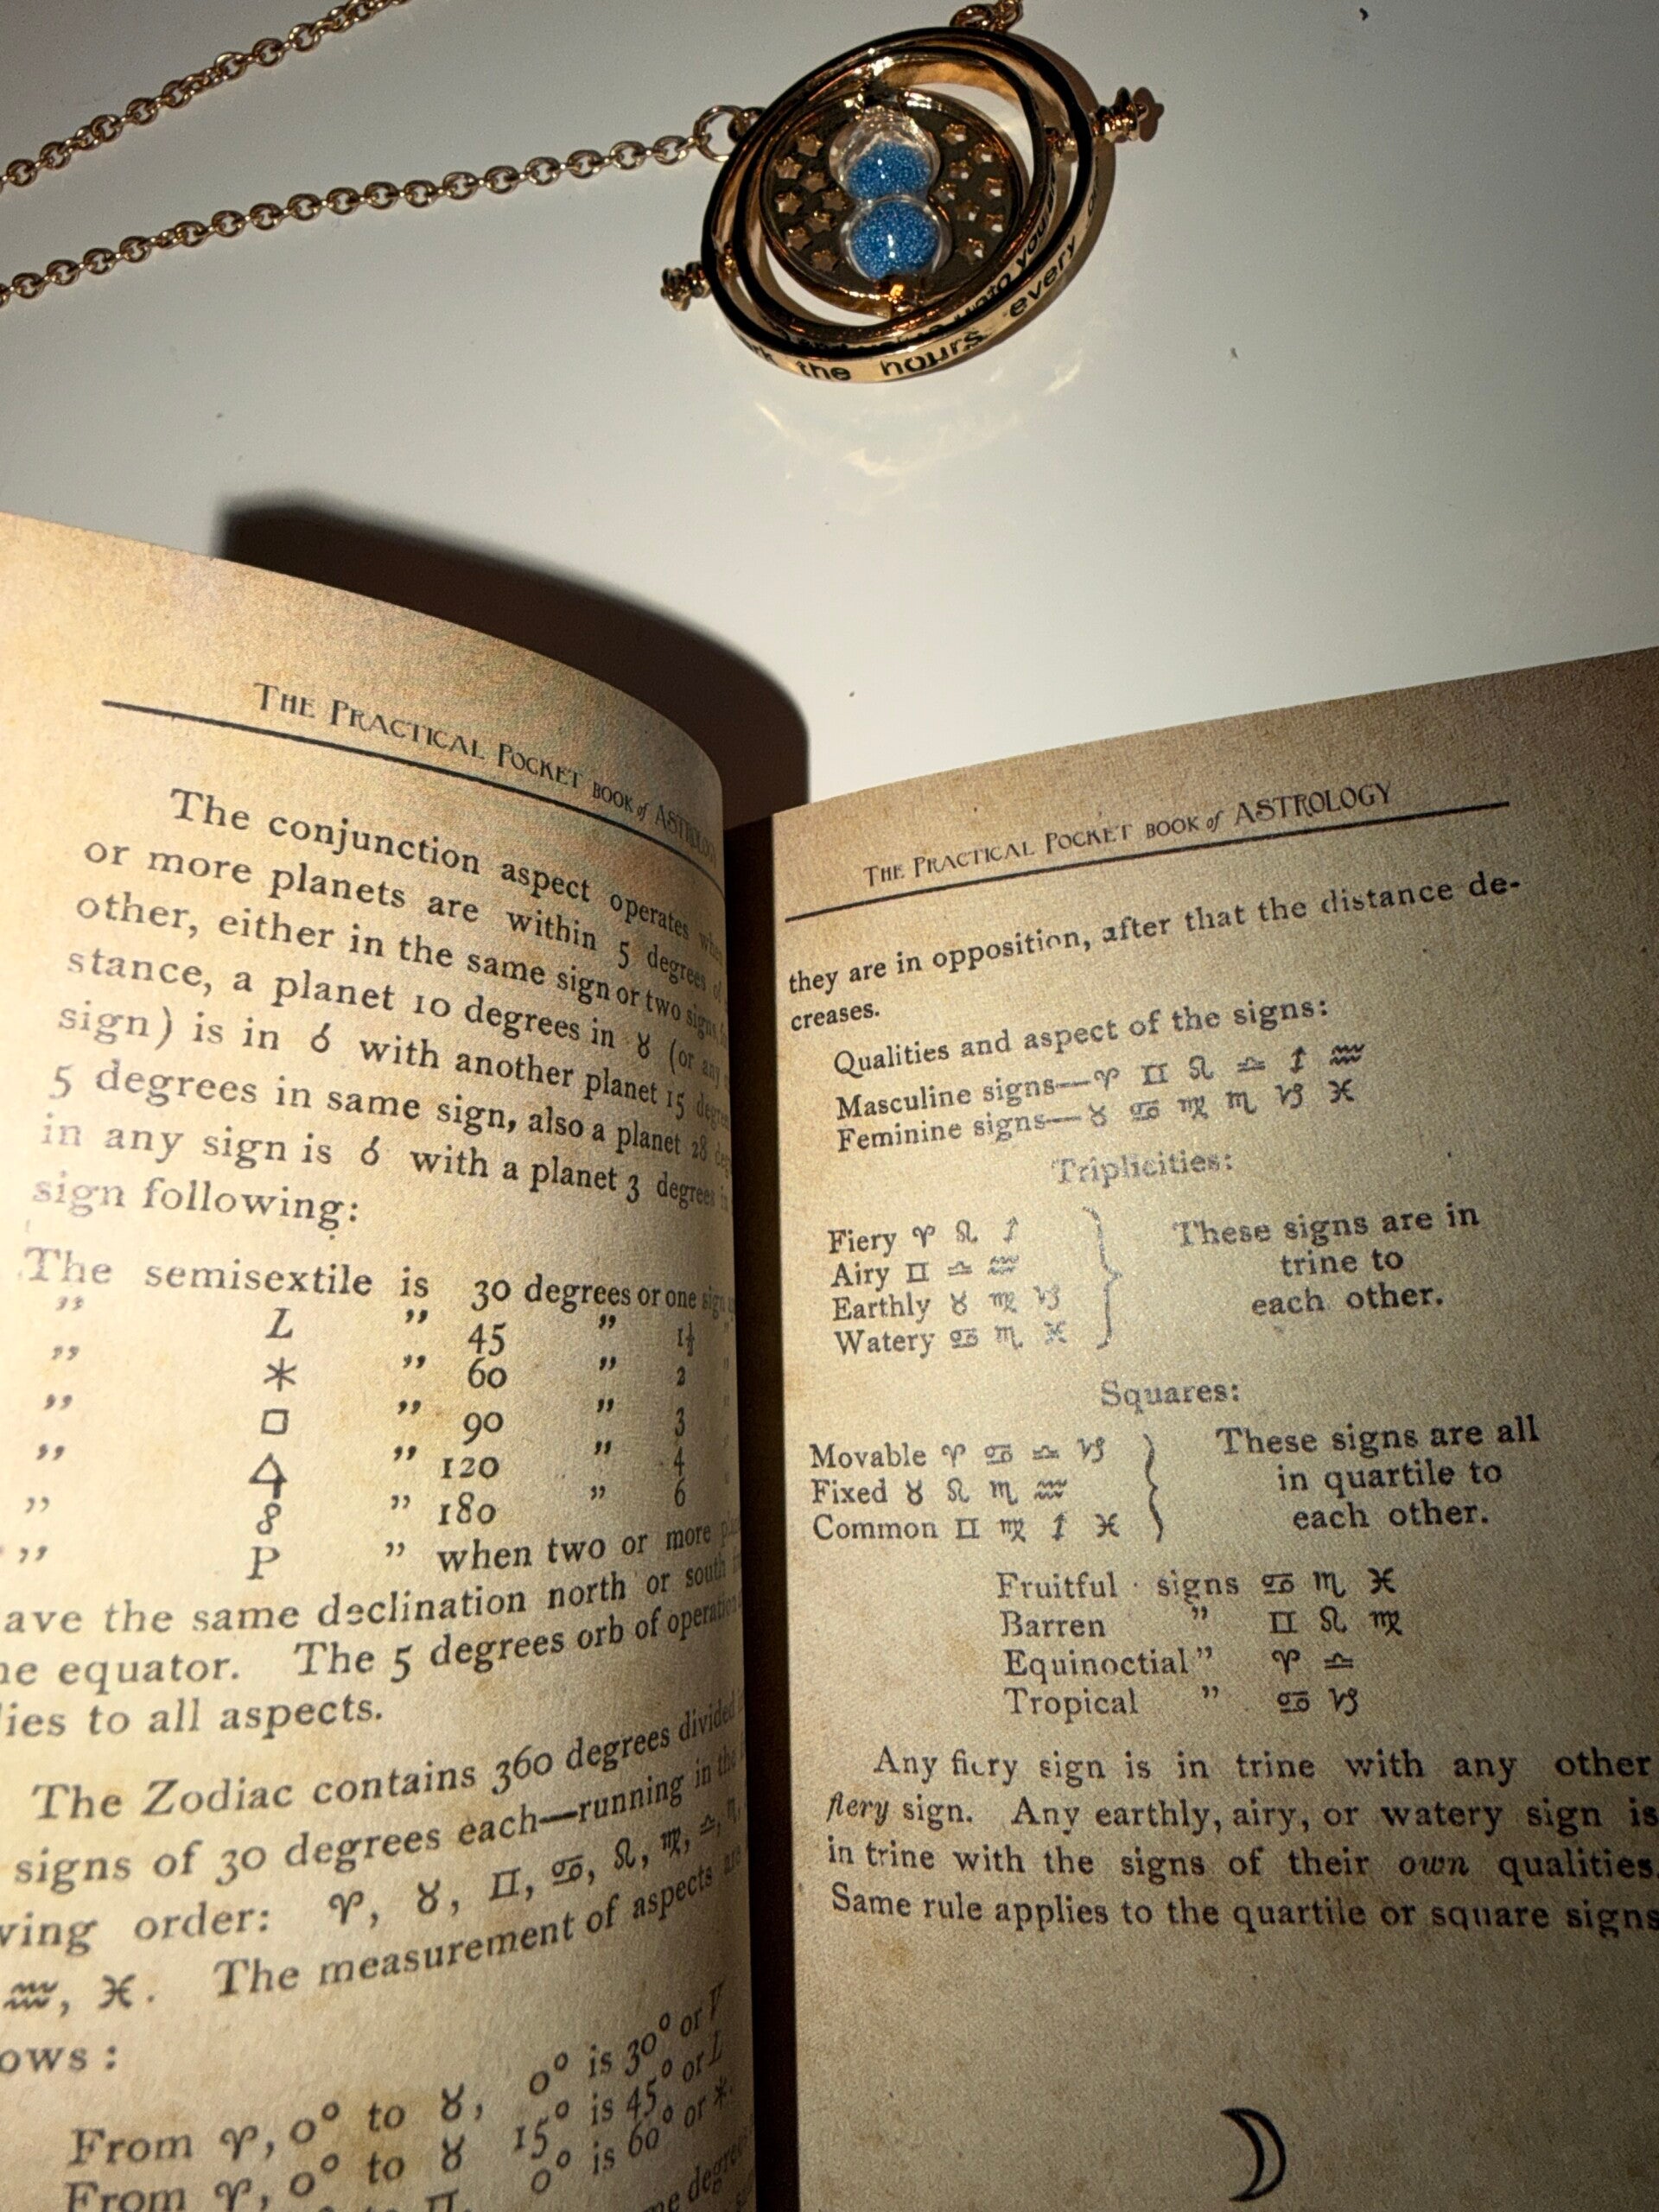 the hours every
unto you
THE PRACTICAL POCKET BOOK of ASTROLOGY
The conjunction aspect operates when
or more planets are within 5 degrees of
other, either in the same sign or two signs
stance, a planet 10 degrees in ♉ (or any
sign) is in ☌ with another planet 15
5 degrees in same sign, also a planet 28
in any sign is ☌ with a planet 3 degrees in
sign following:
The semisextile is 30 degrees or one sign
” L ” 45 ” 1½ ”
” ⚹ ” 60 ” 2 ”
” □ ” 90 ” 3 ”
” △ ” 120 ” 4 ”
” ☍ ” 180 ” 6 ”
” P ” when two or more
ave the same declination north or south
he equator. The 5 degrees orb of operation
lies to all aspects.
The Zodiac contains 360 degrees divided
signs of 30 degrees each—running in the
wing order: ♈, ♉, ♊, ♋, ♌, ♍, ♎, ♏,
♒, ♓. The measurement of aspects are
ows:
From ♈, 0° to ♉, 0° is 30° or
From ♈, 0° to ♉ 15° is 45° or L
♊, 0° is 60° or ⚹.
THE PRACTICAL POCKET BOOK of ASTROLOGY
they are in opposition, after that the distance de-
creases.
Qualities and aspect of the signs:
Masculine signs—♈ ♊ ♌ ♎ ♐ ♒
Feminine signs—♉ ♋ ♍ ♏ ♑ ♓
Triplicities:
Fiery ♈ ♌ ♐
Airy ♊ ♎ ♒
Earthly ♉ ♍ ♑
Watery ♋ ♏ ♓
These signs are in
trine to
each other.
Squares:
Movable ♈ ♋ ♎ ♑
Fixed ♉ ♌ ♏ ♒
Common ♊ ♍ ♐ ♓
These signs are all
in quartile to
each other.
Fruitful signs ♋ ♏ ♓
Barren ” ♊ ♌ ♍
Equinoctial ” ♈ ♎
Tropical ” ♋ ♑
Any fiery sign is in trine with any other
fiery sign. Any earthly, airy, or watery sign is
in trine with the signs of their own qualities.
Same rule applies to the quartile or square signs